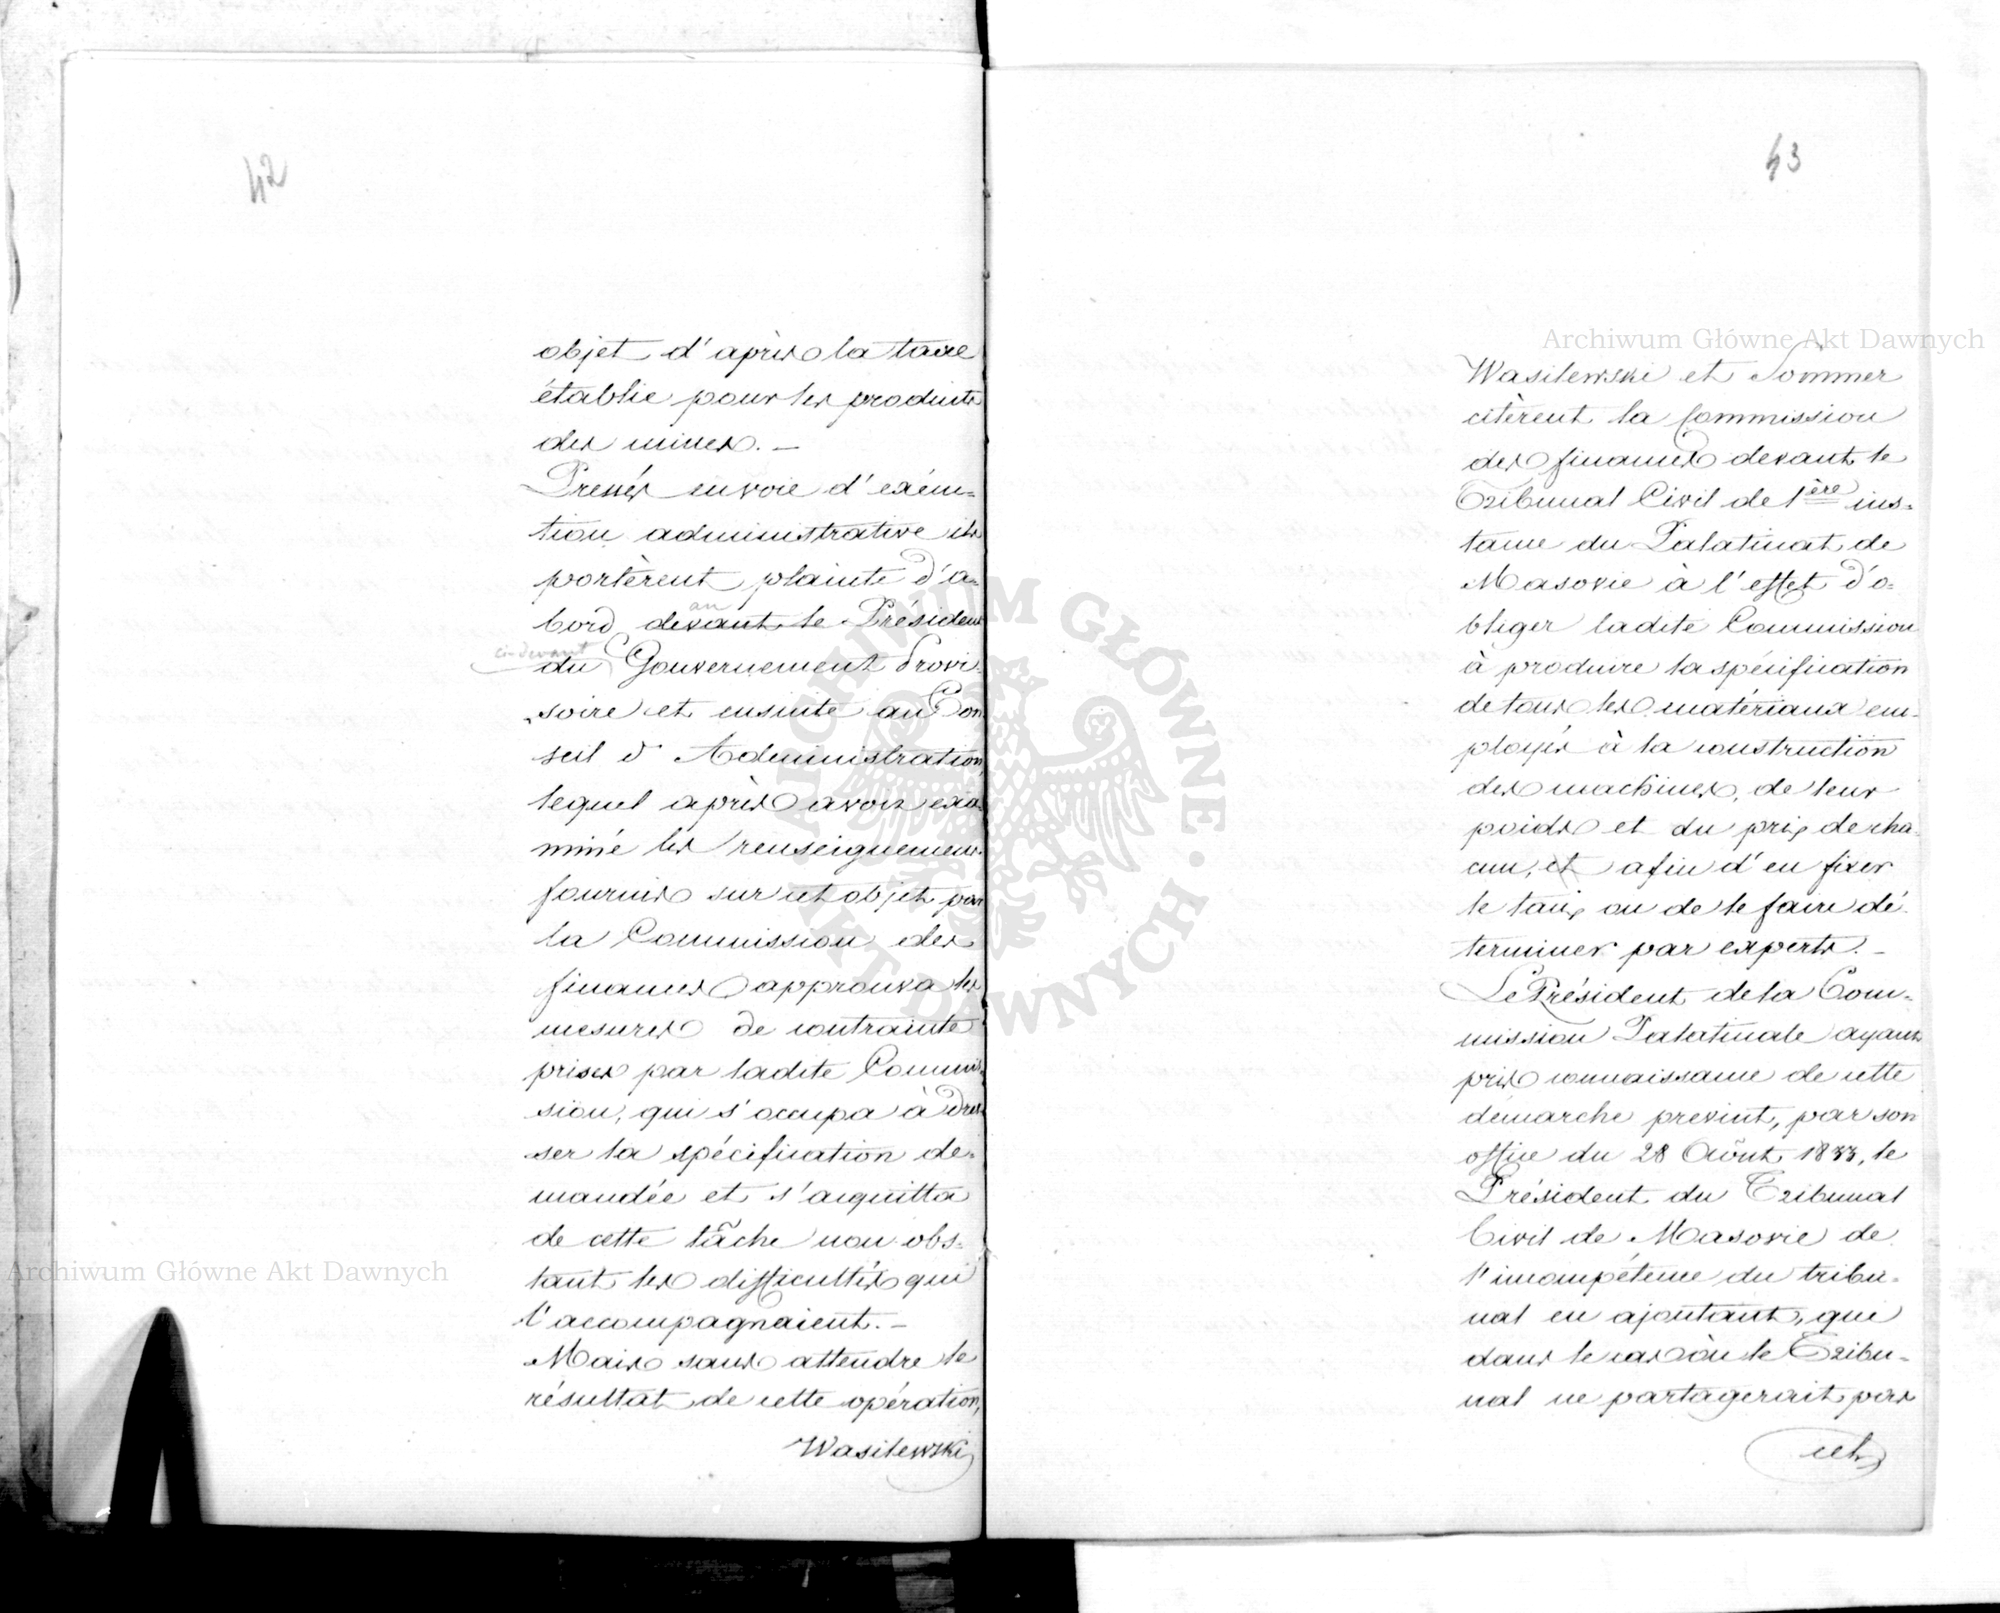 42
objet d'après la taxe
établie pour les produits
des mines. —
Pressés en voie d'exécu-
tion administrative ils
portèrent plainte d'a-
bord devant le Président
au
ci-devant
du Gouvernement Provi-
soire et ensuite au Con
seil d'Administration,
lequel après avoir exa-
miné les renseignemens
fournis sur cet objet par
la Commission des
finances approuva les
mesures de contrainte
prises par ladite Commis-
sion, qui s'occupa à dres
ser la spécification de-
mandée et s'acquitta
de cette tâche non obs-
tant les difficultés qui
l'accompagnaient. —
Mais sans attendre le
résultat de cette opération,
Wasilewski
43
Wasilewski et Sommer
citèrent la Commission
des finances devant le
Tribunal Civil de 1ère ins-
tance du Palatinat de
Masovie à l'effet d'o-
bliger ladite Commission
à produire la spécification
de tous les matériaux em-
ployés à la construction
des machines, de leur
poids et du prix de cha-
cun, et afin d'en fixer
le taux ou de le faire dé-
terminer par experts. —
Le Président de la Com-
mission Palatinale ayant
pris connaissance de cette
démarche prévint, par son
office du 28 Août 1833, le
Président du Tribunal
Civil de Masovie de
l'incompétence du tribu-
nal en ajoutant, que
dans le cas où le Tribu-
nal ne partagerait pas
cet
Archiwum Główne Akt Dawnych
Archiwum Główne Akt Dawnych
ARCHIWUM GŁÓWNE AKT DAWNYCH